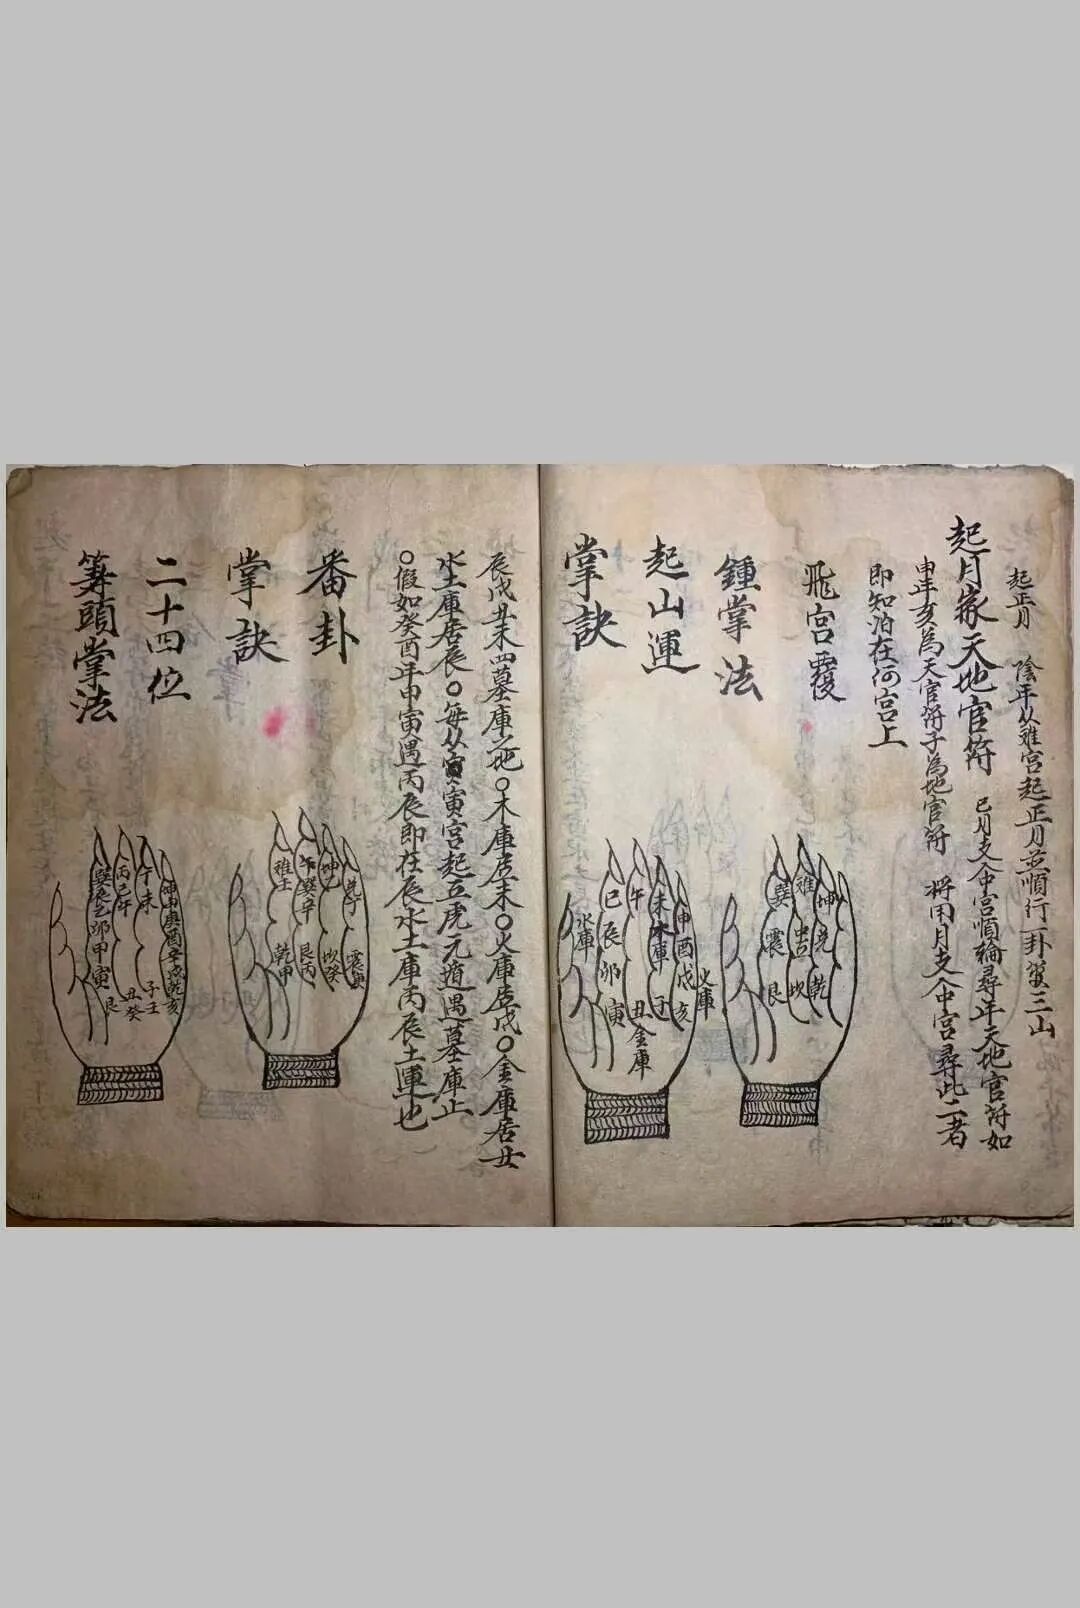 起正月 陰年从难宮起正月並順行一卦管三山
起月家天地官符 巳月支入中宮順輪尋年天地官符如
申年亥為天官符子為地官符 將用月支入中宮尋此二者
即知泊在何宮上
飛宮覆
鍾掌法
起山運
掌訣
巽 离 坤
震 中宮 兌
艮 坎 乾
巳 午 未 申
辰 木庫 酉
卯 戌
寅 丑 子 亥
水庫
金庫
火庫
辰戌丑未四墓庫之地○木庫居未○火庫居戌○金庫居丑
水土庫居辰○每从寅寅宮起五虎元遁遇墓庫止
○假如癸酉年甲寅遇丙辰即在辰水土庫丙辰土運也
番卦
掌訣
二十四位
筭頭掌法
离壬 午巽辛 坤乙 兌丁
乾甲 艮丙 坎癸 震庚
巽辰乙卯甲寅
丙巳午
丁未
坤申庚酉辛戌乾亥
艮
丑癸
子壬